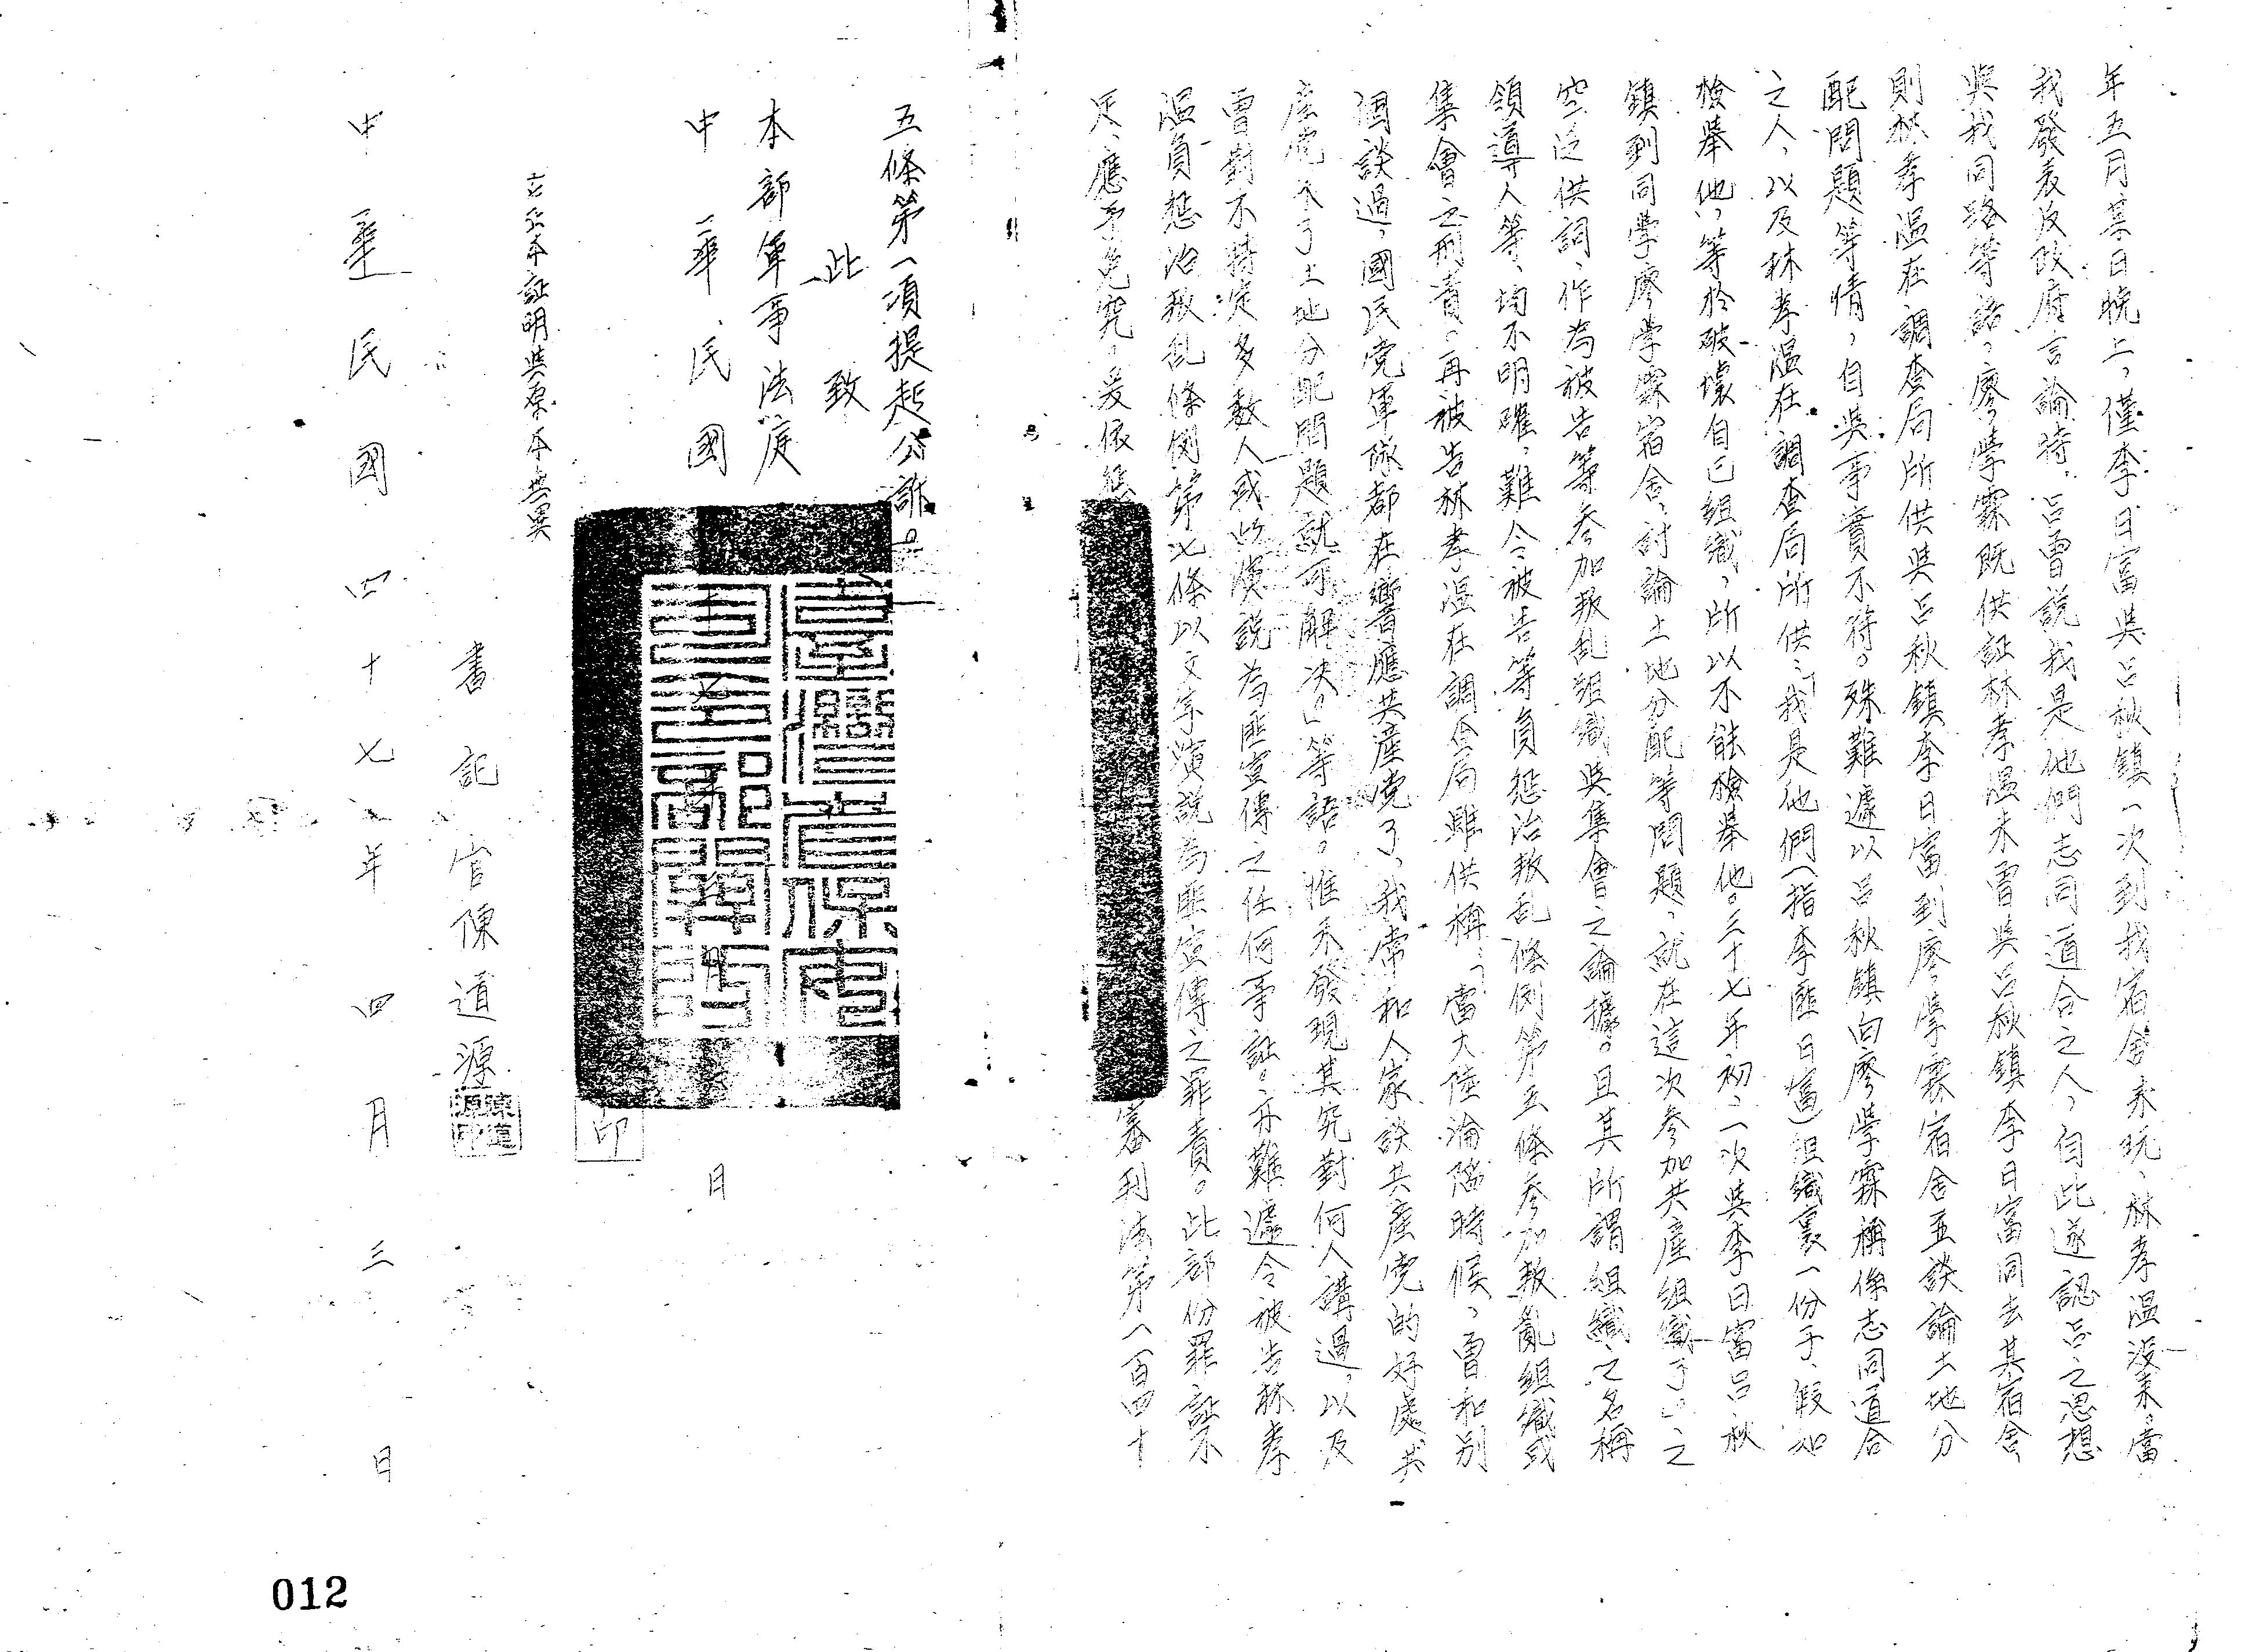 年五月某日晚上，僅李日富與呂秋鎮一次到我宿舍來玩、林孝溫沒來，當
我發表反政府言論時，呂曾說我是他們志同道合之人，自此遂認呂之思想
與我同路等語，廖學霖既供証林孝溫未曾與呂秋鎮李日富同去其宿舍，
則林孝溫在調查局所供與呂秋鎮李日富到廖學霖宿舍並談論土地分
配問題等情，自與事實不符。殊難遽以呂秋鎮向廖學霖稱係志同道合
之人，以及林孝溫在調查局所供：「我是他們（指李匪日富）組織裏一份子、假如
檢舉他，等於破壞自己組織，所以不能檢舉他。三十七年初，一次與李日富呂秋
鎮到同學廖學霖宿舍，討論土地分配等問題，就在這次參加共產組織了。」之
空泛供詞，作為被告等參加叛乱組織與集會之論據。且其所謂組織之名稱
領導人等，均不明確，難令被告等負懲治叛乱條例第五條參加叛亂組織或
集會之刑責。再被告林孝溫在調查局雖供稱：「當大陸淪陷時候，曾和別
個談過，國民党軍隊都在響應共產党了，我常和人家談共產党的好處，共
產党來了土地分配問題就可解决。」等語。惟未發現其究對何人講過，以及
曾對不特定多數人或以演說為匪宣傳之任何事証。亦難遽令被告林孝
溫負懲治叛乱條例第七條以文字演說為匪宣傳之罪責。此部份罪証不
足，應予免究。爰依 審判法第一百四十
五條第一項提起公訴。
此致
本部軍事法庭
中華民國 月 日
右正本証明與原本無異
書記官陳道源
陳道源印
印
中華民國四十七年四月三日
臺灣省保安司令部
012